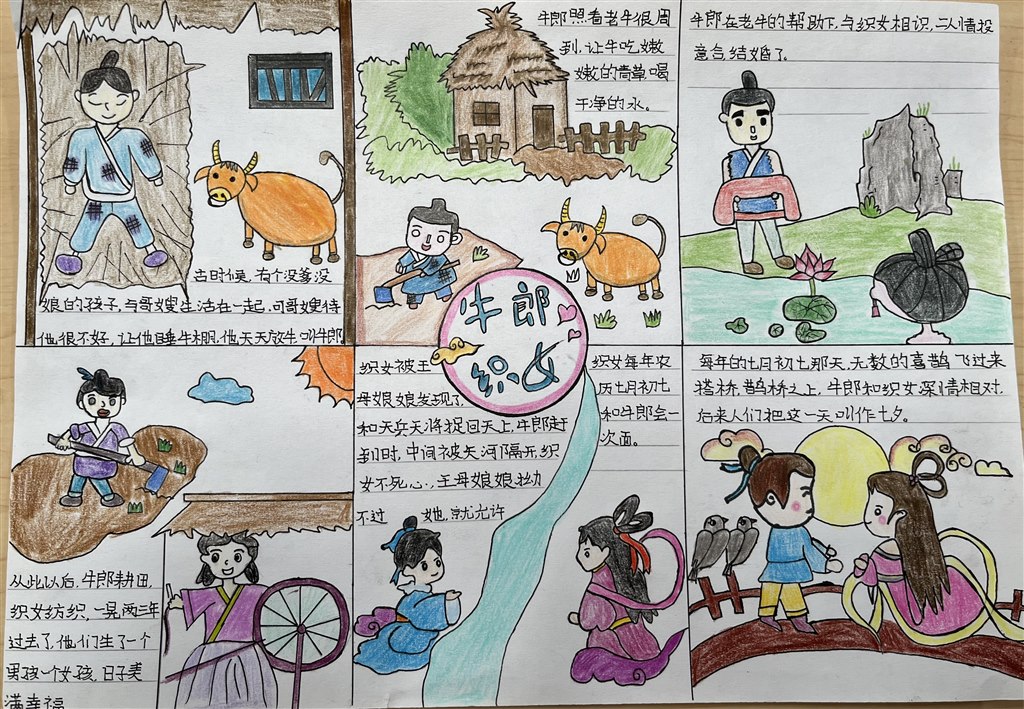 古时候,有个没爹没
娘的孩子,与哥嫂生活在一起,可哥嫂待
他很不好,让他睡牛棚,他天天放牛叫牛郎
牛郎照看老牛很周
到,让牛吃嫩
嫩的青草,喝
干净的水。
牛郎在老牛的帮助下,与织女相识,二人情投
意合,结婚了。
牛郎
织女
从此以后,牛郎耕田,
织女纺织,一晃两三年
过去了,他们生了一个
男孩一个女孩,日子美
满幸福
织女被王
母娘娘发现了,
和天兵天将捉回天上,牛郎赶
到时,中间被天河隔开,织
女不死心,王母娘娘拗
不过 她,就允许
织女每年农
历七月初七
和牛郎会一
次面。
每年的七月初七那天,无数的喜鹊飞过来
搭桥,鹊桥之上,牛郎和织女深情相对,
后来人们把这一天叫作七夕。